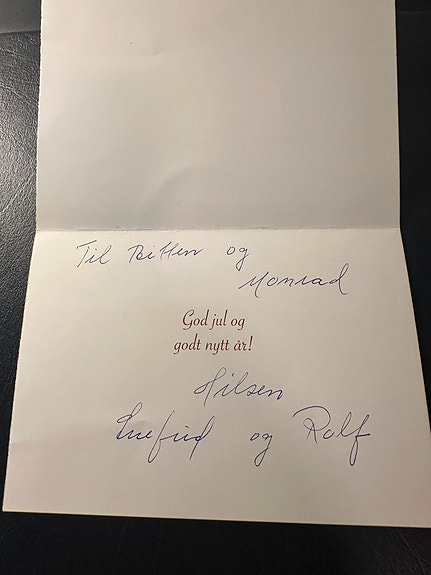 Til Bitten og
Monrad
God jul og
godt nytt år!
Hilsen
og Rolf